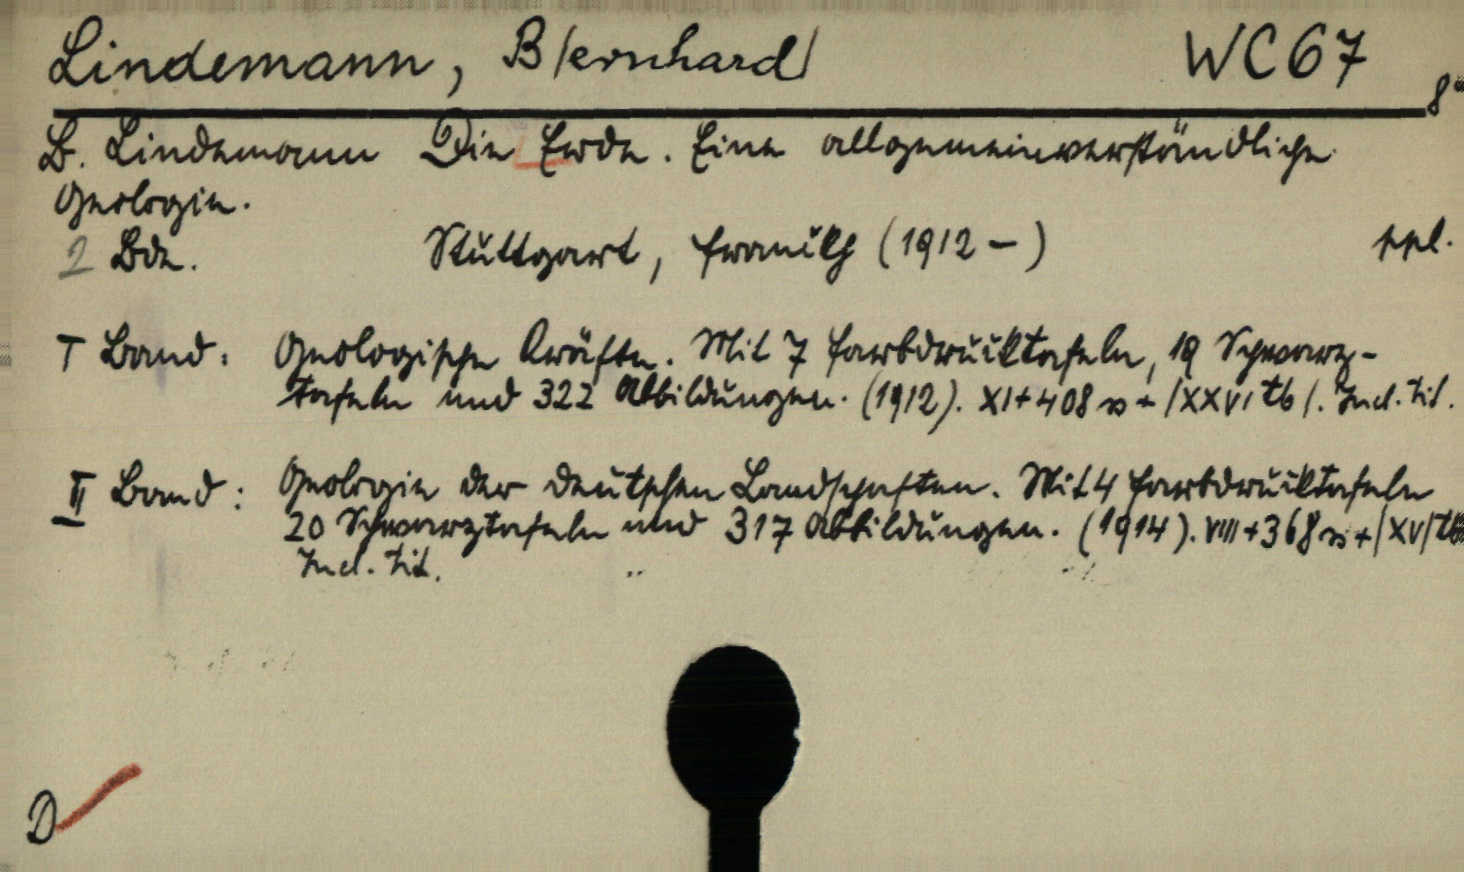 Lindemann, B/ernhard/ WC67
8°
B. Lindemann Die Erde. Eine allgemeinverständliche
Geologie.
2 Bde. Stuttgart, Franckh (1912 – ) ppl.
I Band: Geologische Kräfte. Mit 7 Farbdrucktafeln, 19 Schwarz-
tafeln und 322 Abbildungen. (1912). XI+408 ss + /XXVI tb/. Incl. tit.
II Band: Geologie der deutschen Landschaften. Mit 4 Farbdrucktafeln
20 Schwarztafeln und 317 Abbildungen. (1914). VIII+368 ss + /XV/ tb
Incl. tit.
D